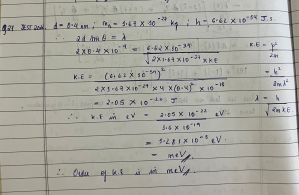 Q24. JEST 2016. d = 0.4 nm ; mn = 1.67 × 10⁻²⁷ kg ; h = 6.62 × 10⁻³⁴ J.s.
∴ 2d sinθ = λ
2 × 0.4 × 10⁻⁹ = 6.62 × 10⁻³⁴ / √(2 × 1.67 × 10⁻²⁷ × KE)
K.E = (6.62 × 10⁻³⁴)² / (2 × 1.67 × 10⁻²⁷ × 4 × (0.4)² × 10⁻¹⁸) = h² / 2mλ²
= 2.05 × 10⁻²² J
λ = h / √(2mKE)
∴ K.E in eV = 2.05 × 10⁻²² / 1.6 × 10⁻¹⁹ eV
= 1.281 × 10⁻³ eV
= meV
∴ Order of K.E is in meV.